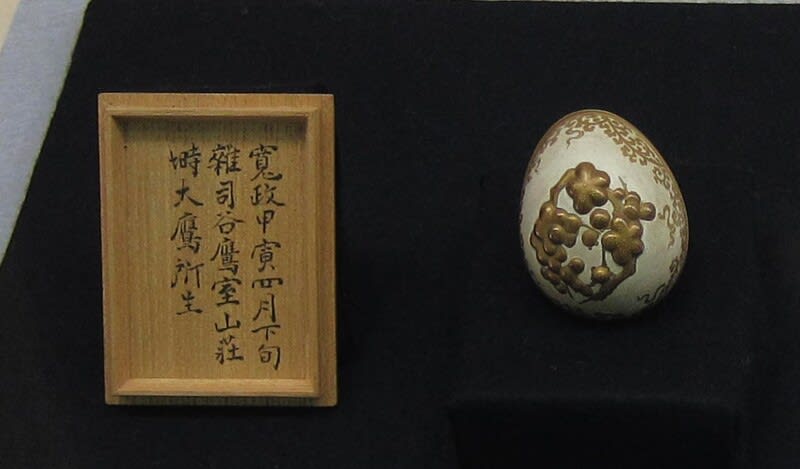 寛政甲寅四月下旬
雑司谷鷹室山荘
塒大鷹所生